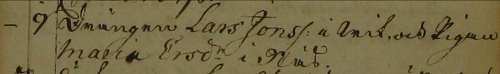 - 9 Drängen Lars Jonss: i Vik, och Pigan
Maria Ersdr i Näs.